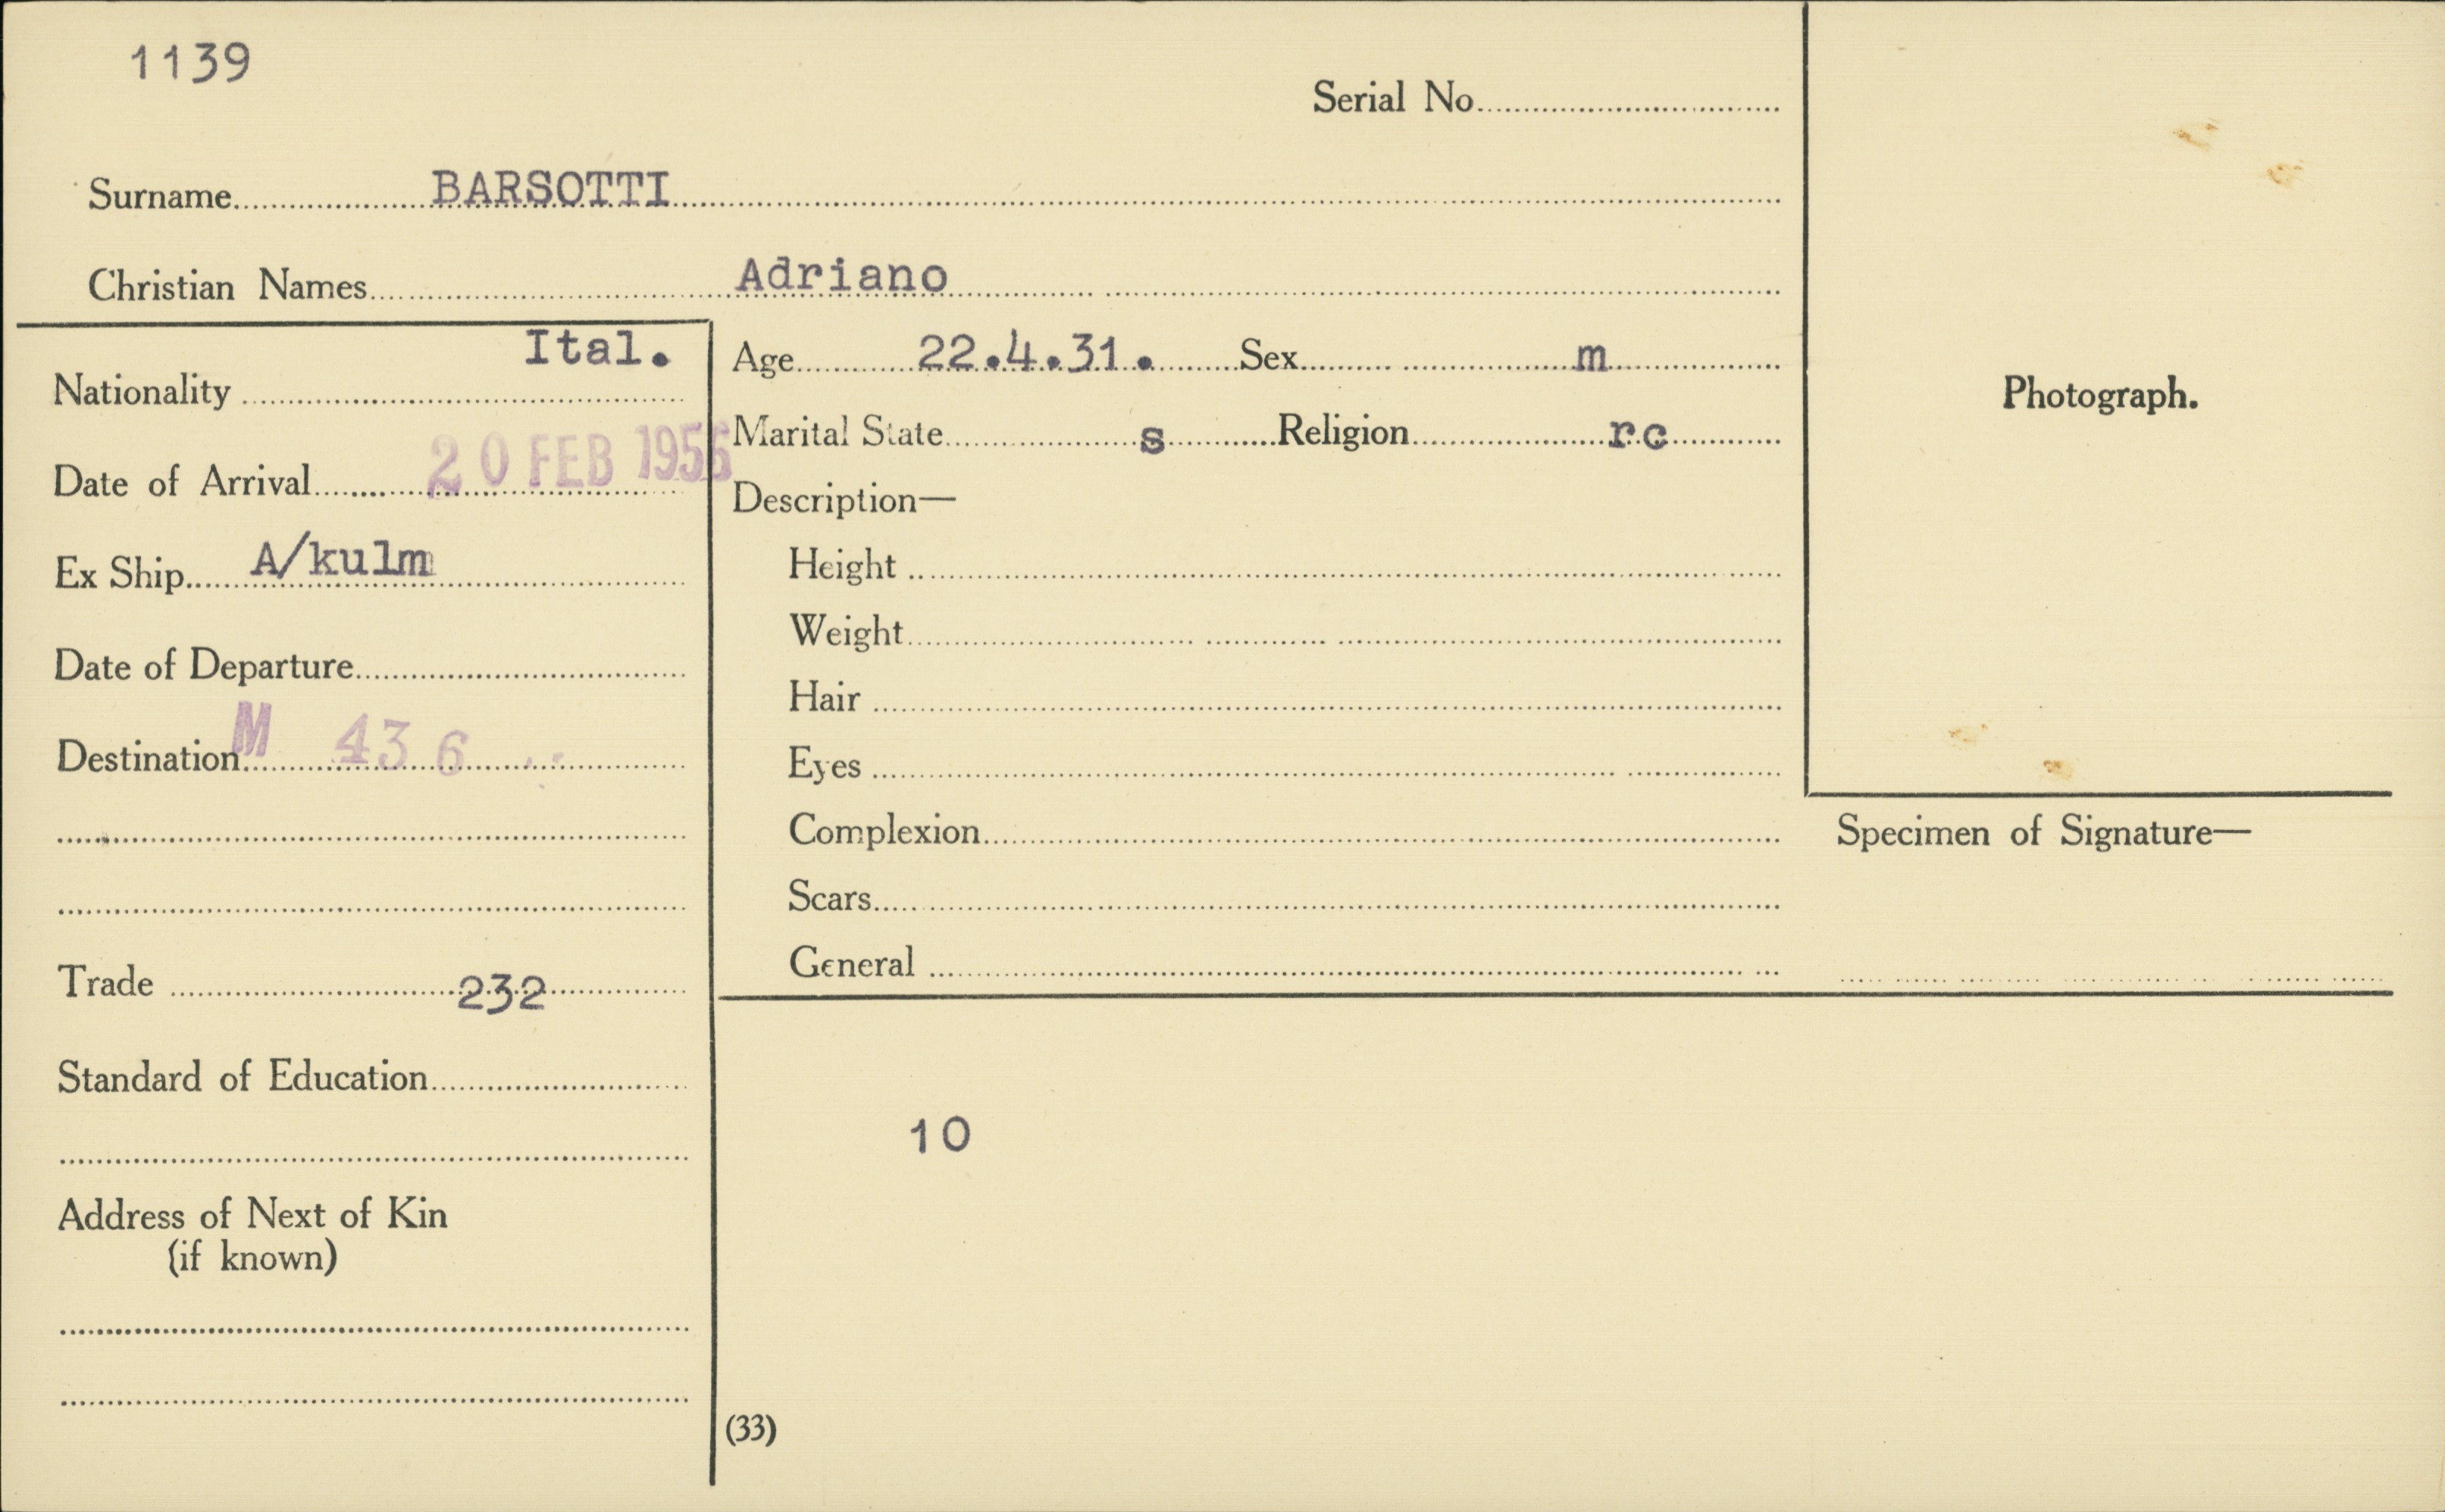 1139
Serial No.
Surname BARSOTTI
Christian Names Adriano
Nationality Ital.
Date of Arrival 20 FEB 1956
Ex Ship A/kulm
Date of Departure
Destination M 436
Trade 232
Standard of Education
Address of Next of Kin
(if known)
Age 22.4.31. Sex m
Marital State s Religion rc
Description—
Height
Weight
Hair
Eyes
Complexion
Scars
General
10
(33)
Photograph.
Specimen of Signature—